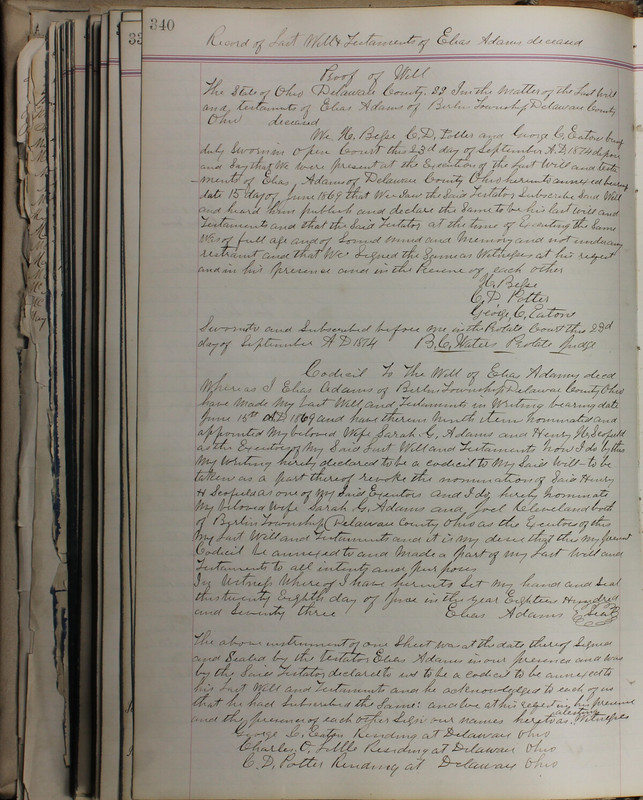 340
Record of Last Will & Testaments of Elias Adams deceased
Proof of Will
The State of Ohio Delaware County. SS In the Matter of the Last Will
and testaments of Elias Adams of Berlin Township Delaware County
Ohio deceased
We H. Besse C.D. Potter and George C. Eaton being
duly Sworn in open Court this 23d day of September A.D 1874 depose
and Say that We were present at the Execution of the Last Will and testa
ments of Elias, Adams of Delaware County Ohio hereunto annexed bearing
date 15 day of June 1869 that We Saw the Said Testator Subscribe Said Will
and heard him publish and declare the Same to be his last will and
Testaments and that the Said Testator at the time of Executing the Same
Was of full age and of Sound mind and Memory and not under any
restraint and that We Signed the Same as Witnesses at his request
and in his presense and in the of each other
H. Besse
C. D. Potter
George, C, Eaton
Sworn to and Subscribed before me, in the Probate Court this 23d
day of September A.D 1874 B. C. Waters Probate Judge
Codicil To The Will of Elias Adams decd
Whereas I Elias Adams of Berlin Township Delaware County Ohio
have Made My Last Will and Testaments in Writing bearing date
June 15th A.D 1869 and have therein item nominated and
appointed My beloved Wife Sarah G, Adams and Henry H Scofield
as the Executors of My Said Last Will and Testament Now I do by this
My Writing hereby declared to be a codicil to My Said Will to be
taken as a part thereof revoke the nomination of Said Henry
H Scofield as one of My Said Executors and I do, hereby nominate
My beloved Wife Sarah G. Adams and Joel Cleveland both
of Berlin Township Delaware County Ohio as the Executors of this
My Last Will and Testaments and it is my desire that this my present
Codicil be annexed to and Made a part of my Last Will and
Testaments to all intents and purposes
In Witness Whereof I have hereunto Set My hand and Seal
this twenty Eighth day of June in the year Eighteen Hundred
and Seventy three Elias Adams Seal
The above instrument of one Sheet was at the date thereof Signed
and Sealed by the testator Elias Adams in our presence and was
by the Said Testator declared to us to be a codicil to be annexed to
his Last Will and Testaments and he acknowledged to each of us
that he had Subscribed the Same: and we at his request in his presence
and the presence of each other Sign our names hereto as attesting Witnesses
George C. Eaton Residing at Delaware Ohio
Charles, O, Little Residing at Delaware Ohio
C. D. Potter Residing at Delaware Ohio